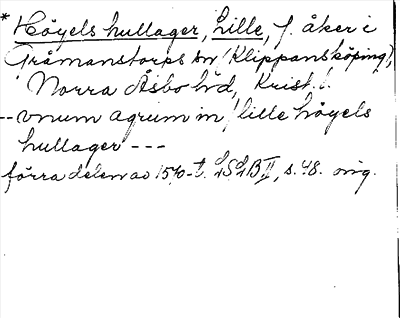 * Höyels hullager, Lille, f. åker i
Gråmanstorps sn (Klippansköping),
Norra Åsbo hd, Krist. l.
-- vnum agrum in / lille höyels
hullager ---
förra delen av 1540-t. LSLB II, s. 48. orig.